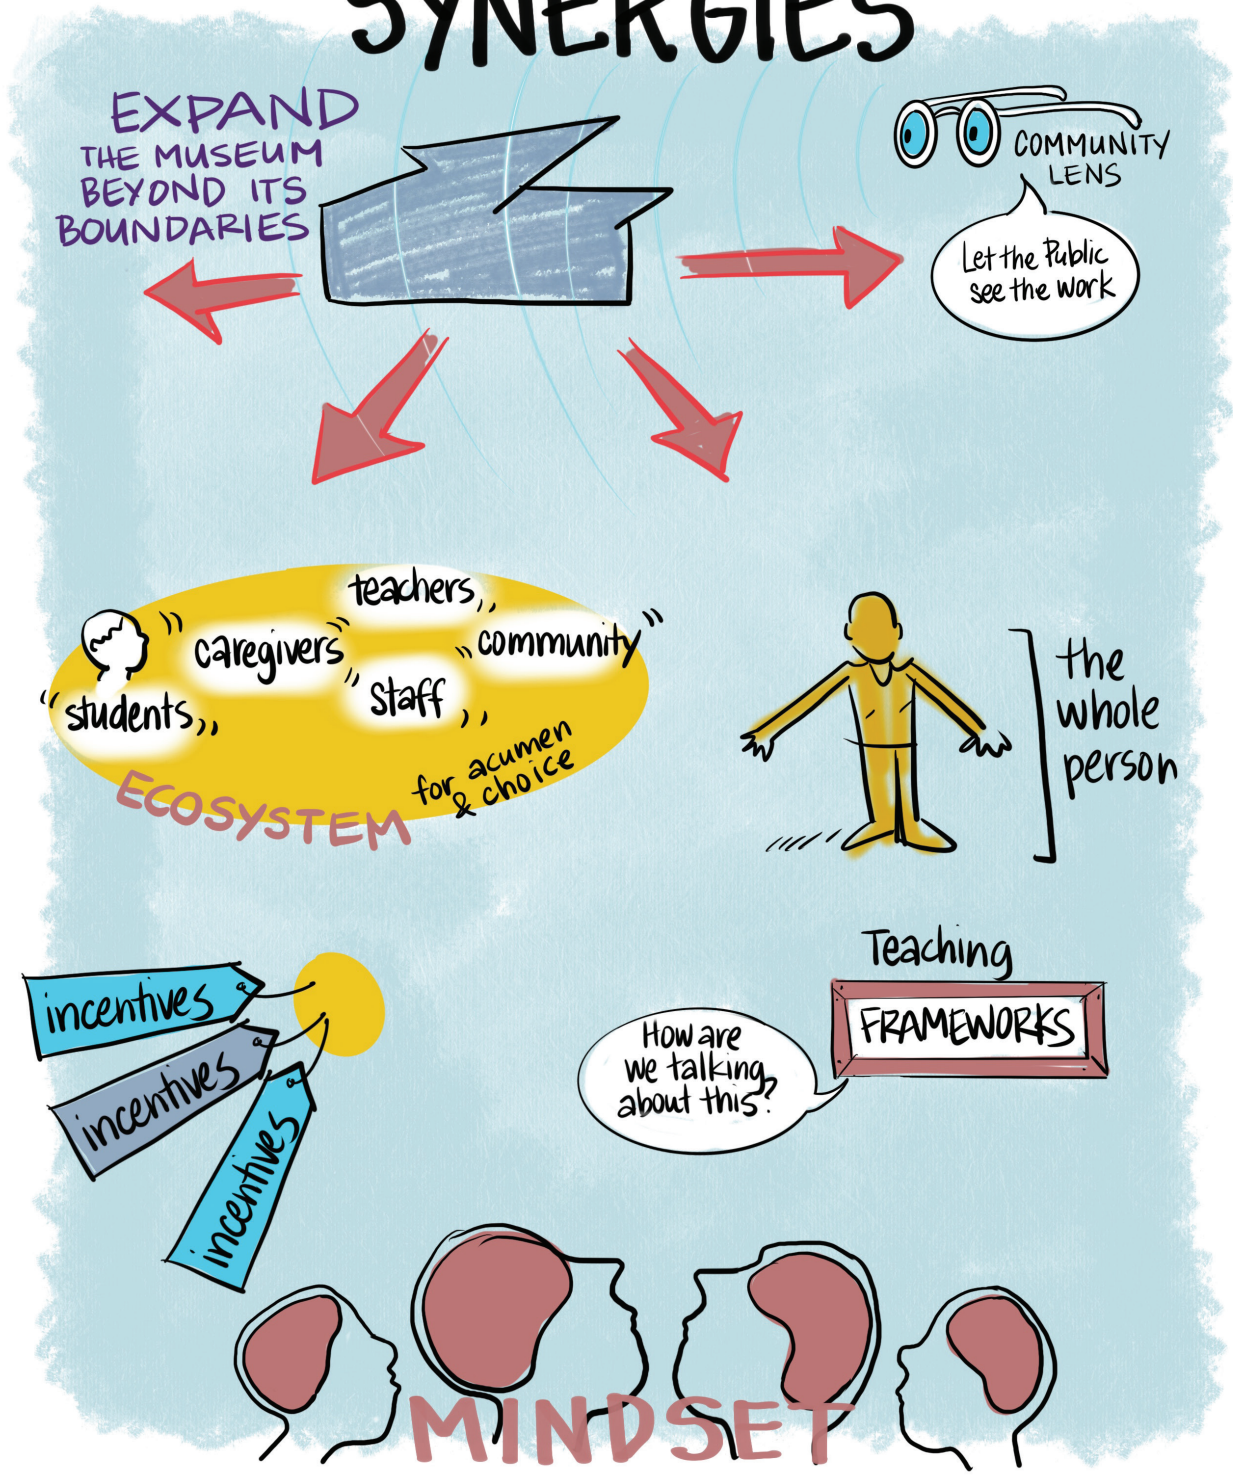 SYNERGIES
EXPAND
THE MUSEUM
BEYOND ITS
BOUNDARIES
COMMUNITY
LENS
Let the Public
see the work
teachers,,
"caregivers"
"community"
"staff,,
"students,,
ECOSYSTEM
for acumen
& choice
the
whole
person
incentives
incentives
incentives
Teaching
FRAMEWORKS
How are
we talking
about this?
MINDSET